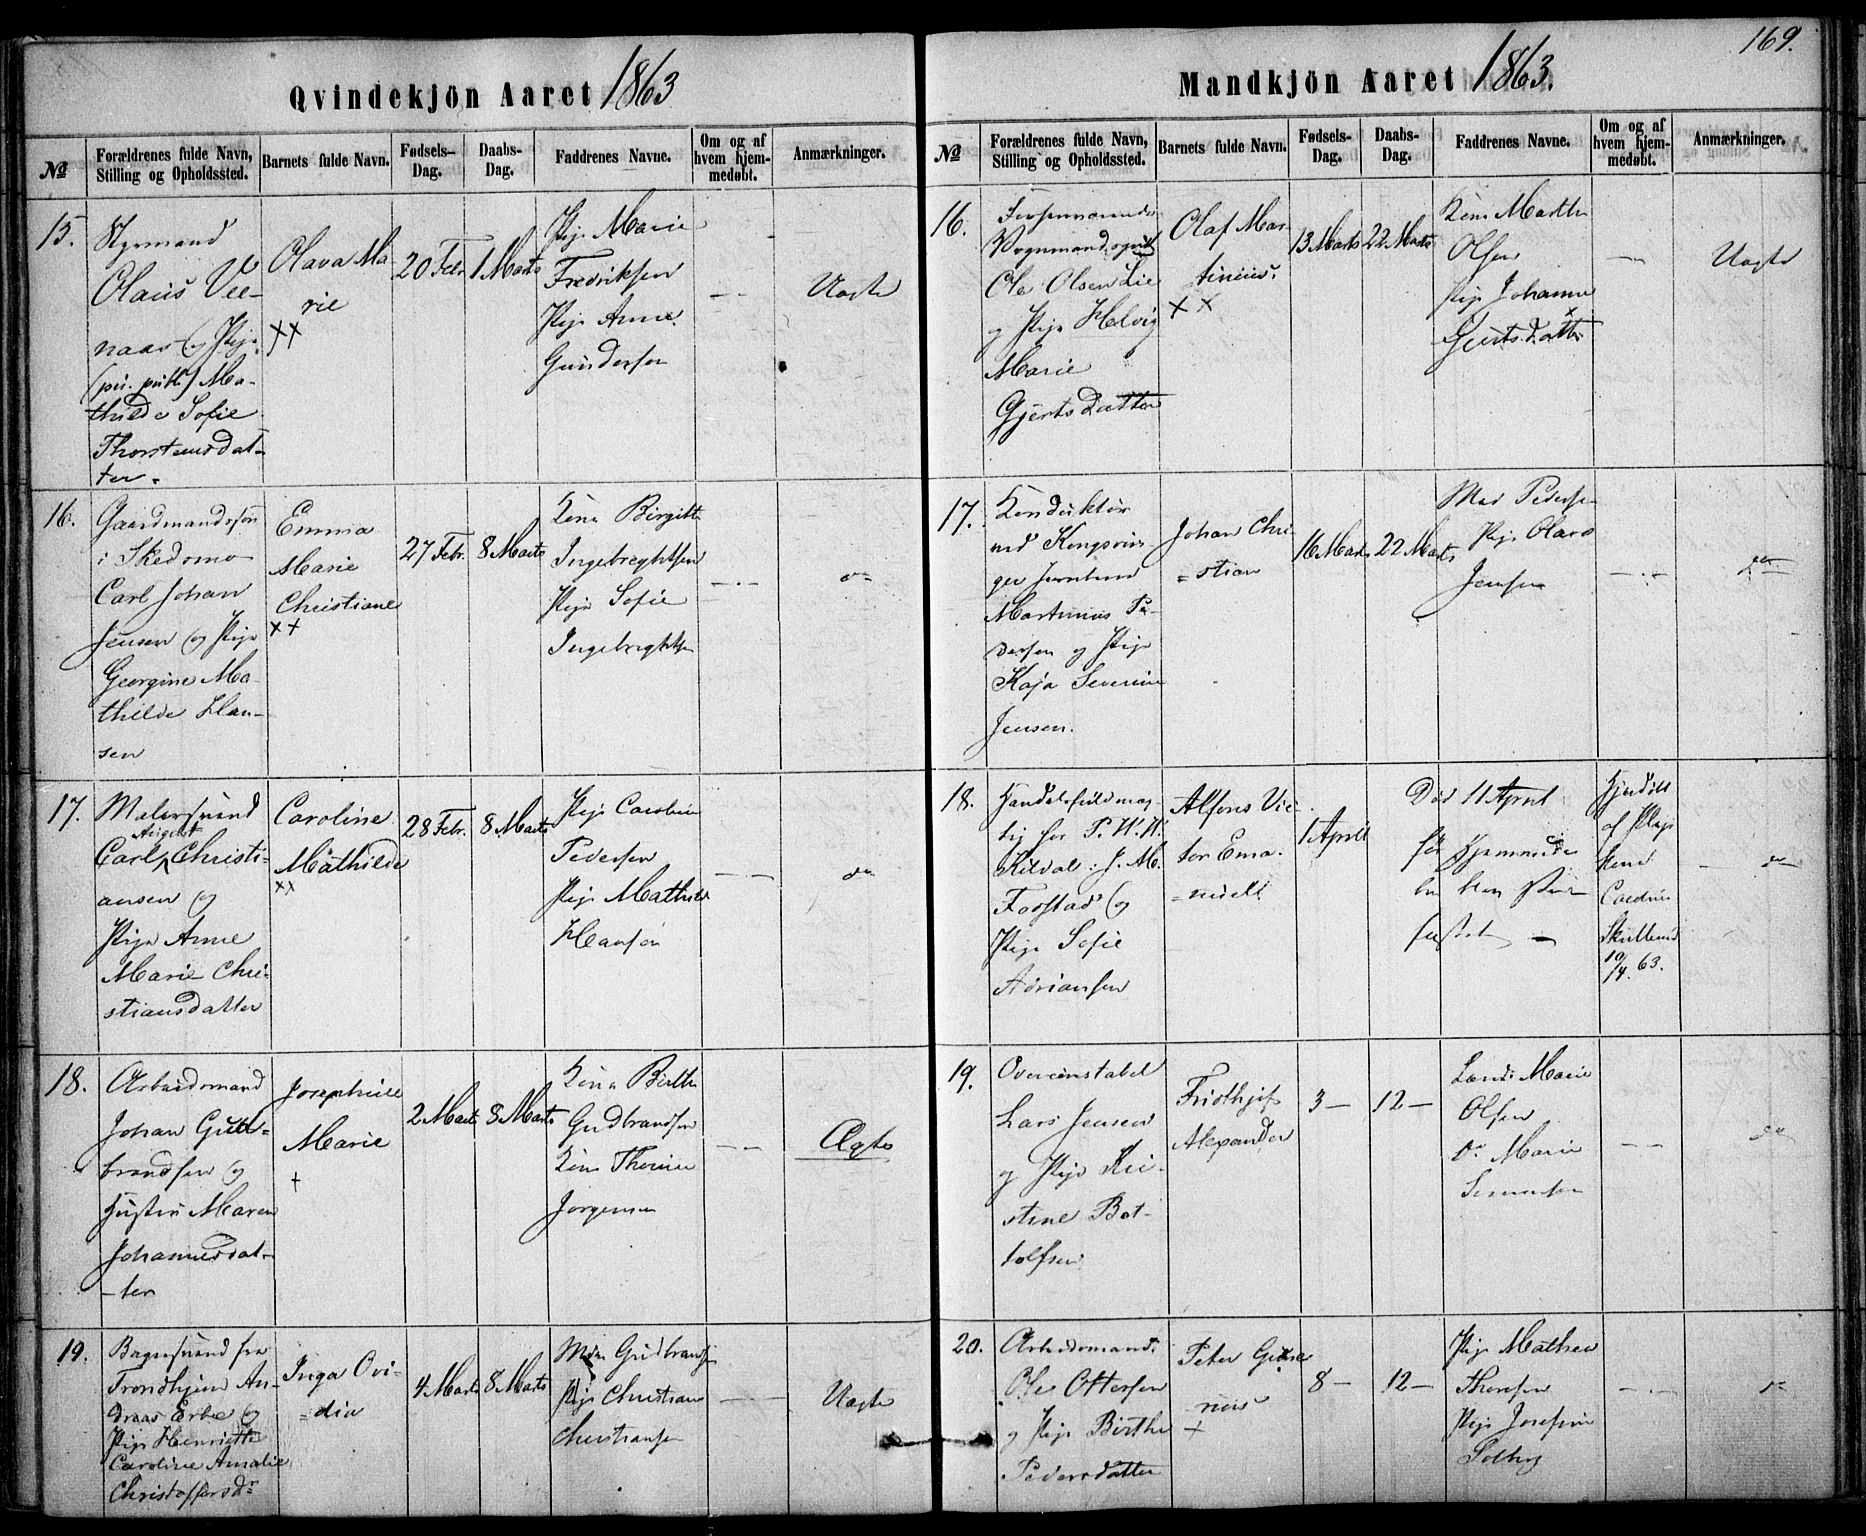 169.
Qvindekjön Aaret 1863
№
Forældrenes fulde Navn, Stilling og Opholdssted.
Barnets fulde Navn.
Fødsels-Dag.
Daabs-Dag.
Faddrenes Navne.
Om og af hvem hjem-medøbt.
Anmærkninger.
15.
Styrmand
Olaus Vee-
naas og Pige
(pu. publ.) Ma-
thilde Sofie
Thorstensdat-
ter.
Olava Ma-
rie
××
20 Febr
1 Marts
Pige Marie
Fredriksen
Pige Anne
Gundersen
Uægte
16.
Gaardmandssøn
i Skedsmo
Carl Johan
Jensen og Pige
Georgine Ma-
thilde Han-
sen
Emma
Marie
Christiane
××
27 Febr.
8 Marts
Kone Birgitte
Ingebreghtsen
Pige Sofie
Ingebreghtsen
do
17.
Malersvend
August
Carl Christi-
ansen og
Pige Anne
Marie Chri-
stiansdatter
Caroline
Mathilde
××
28 Febr.
8 Marts
Pige Caroline
Pedersen
Pige Mathilde
Hansen
do
18.
Arbeidsmand
Johan Guld-
brandsen og
Hustru Maren
Johannesdat-
-ter
Josephine
Marie
+
2 Marts
8 Marts
Kone Birthe
Gudbrandsen
Kone Thorine
Jørgensen
Ægte
19.
Bagersvend fra
Trondhjem An-
dreas Erbe og
Pige Henriette
Caroline Amalie
Christoffersdr
Inga Ovi-
=dia
4 Marts
8 Marts
Gudbrandsen
Pige Christiane
Christiansen
Uægte
Mandkjön Aaret 1863.
№
Forældrenes fulde Navn, Stilling og Opholdssted.
Barnets fulde Navn.
Fødsels-Dag.
Daabs-Dag.
Faddrenes Navne.
Om og af hvem hjem-medøbt.
Anmærkninger.
16.
Vognmand
Ole Olsen Lie
og Pige Helvig
Marie
Gjertsdatter
Olaf Mar-
tinius.
××
13 Marts
22 Marts
Kone Marthe
Olsen
Pige Johanne
Gjertsdatter
Uægte
17.
Konduktør
ved Kongsvin-
ger Jernbane
Martinius Pe-
dersen og Pige
Kaja Severine
Jensen.
Johan Chri-
=stian
16 Marts
22 Marts
Pedersen
Pige Olava
Jensen
do
18.
Handelsfuldmæg-
tig for P. W. W.
Kildal: J. M.
Forstad og
Pige Sofie
Adriansen
Alfons Vic-
tor Ema-
=nuel
1 April
Død 11 April
før
Hjemdøbt
af Pleje
Skullerud
10/4. 63.
do
19.
Overconstabel
Lars Jensen
og Pige Kri-
stine Bot-
tolfsen
Fridthjof
Alexander
3 —
12 —
Marie
Olsen
Do Marie
Simensen
do
20.
Arbeidsmand
Ole Ottersen
og Pige Birthe
Pedersdatter
Peter
+
8 —
12 —
Pige Mathea
Thoresen
Pige Josefine
Solberg
do